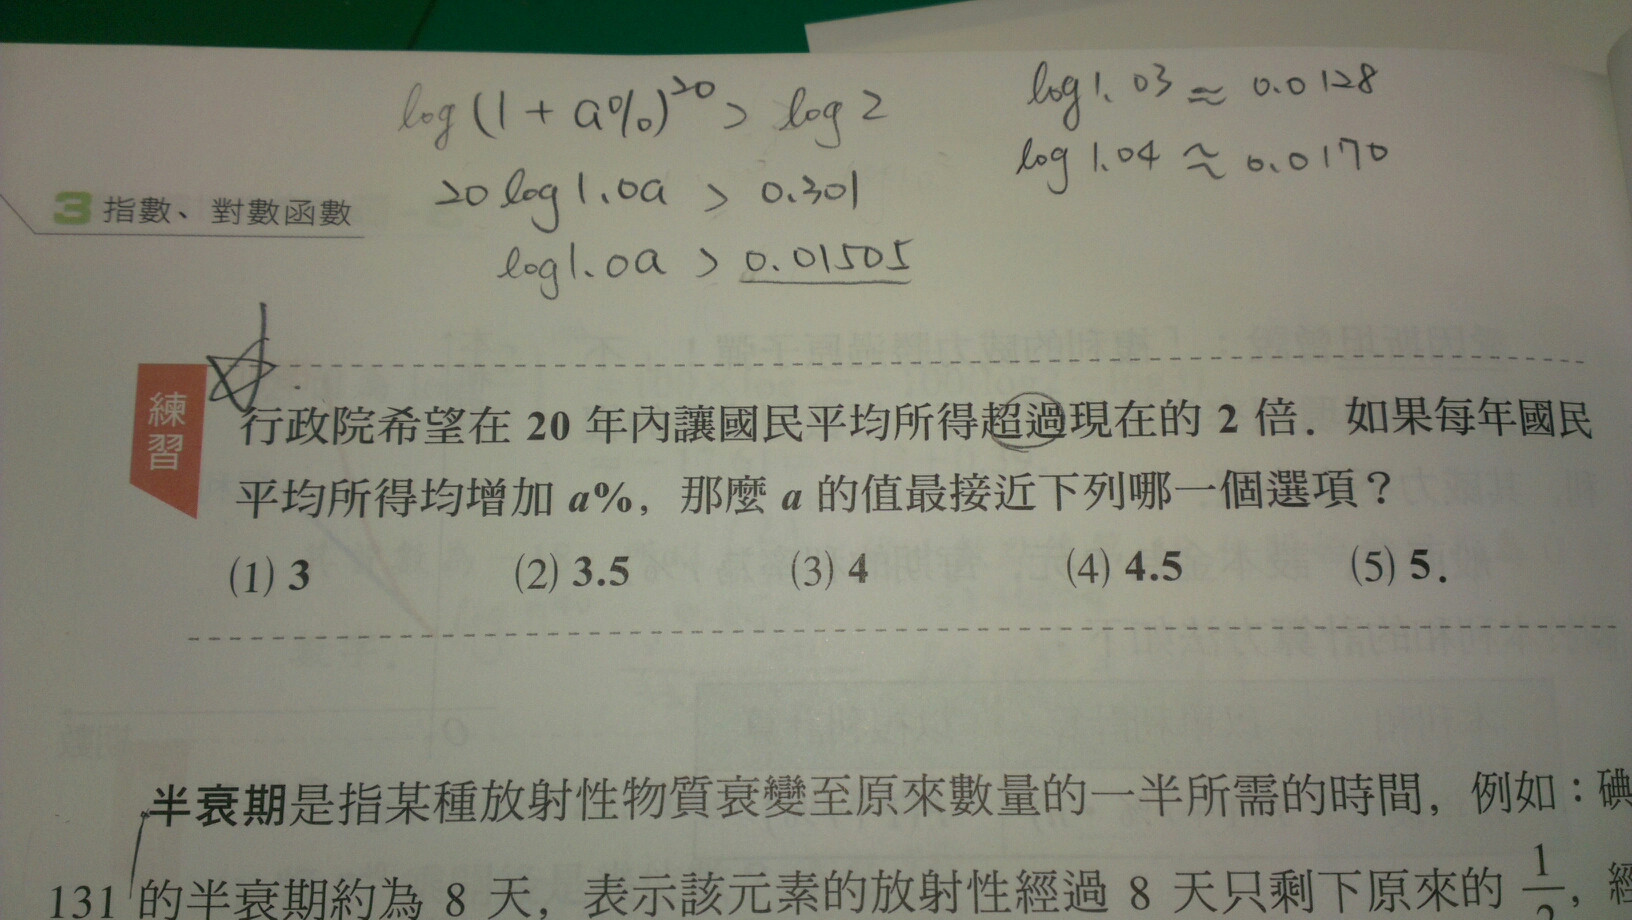 log(1+a%)^20 > log2
log1.03≈0.0128
20log1.0a > 0.301
log1.04≈0.0170
3 指數、對數函數
log1.0a > 0.01505
練習
行政院希望在 20 年內讓國民平均所得超過現在的 2 倍．如果每年國民
平均所得均增加 a%，那麼 a 的值最接近下列哪一個選項？
(1) 3 (2) 3.5 (3) 4 (4) 4.5 (5) 5．
半衰期是指某種放射性物質衰變至原來數量的一半所需的時間，例如：碘
131 的半衰期約為 8 天，表示該元素的放射性經過 8 天只剩下原來的 1/2，經